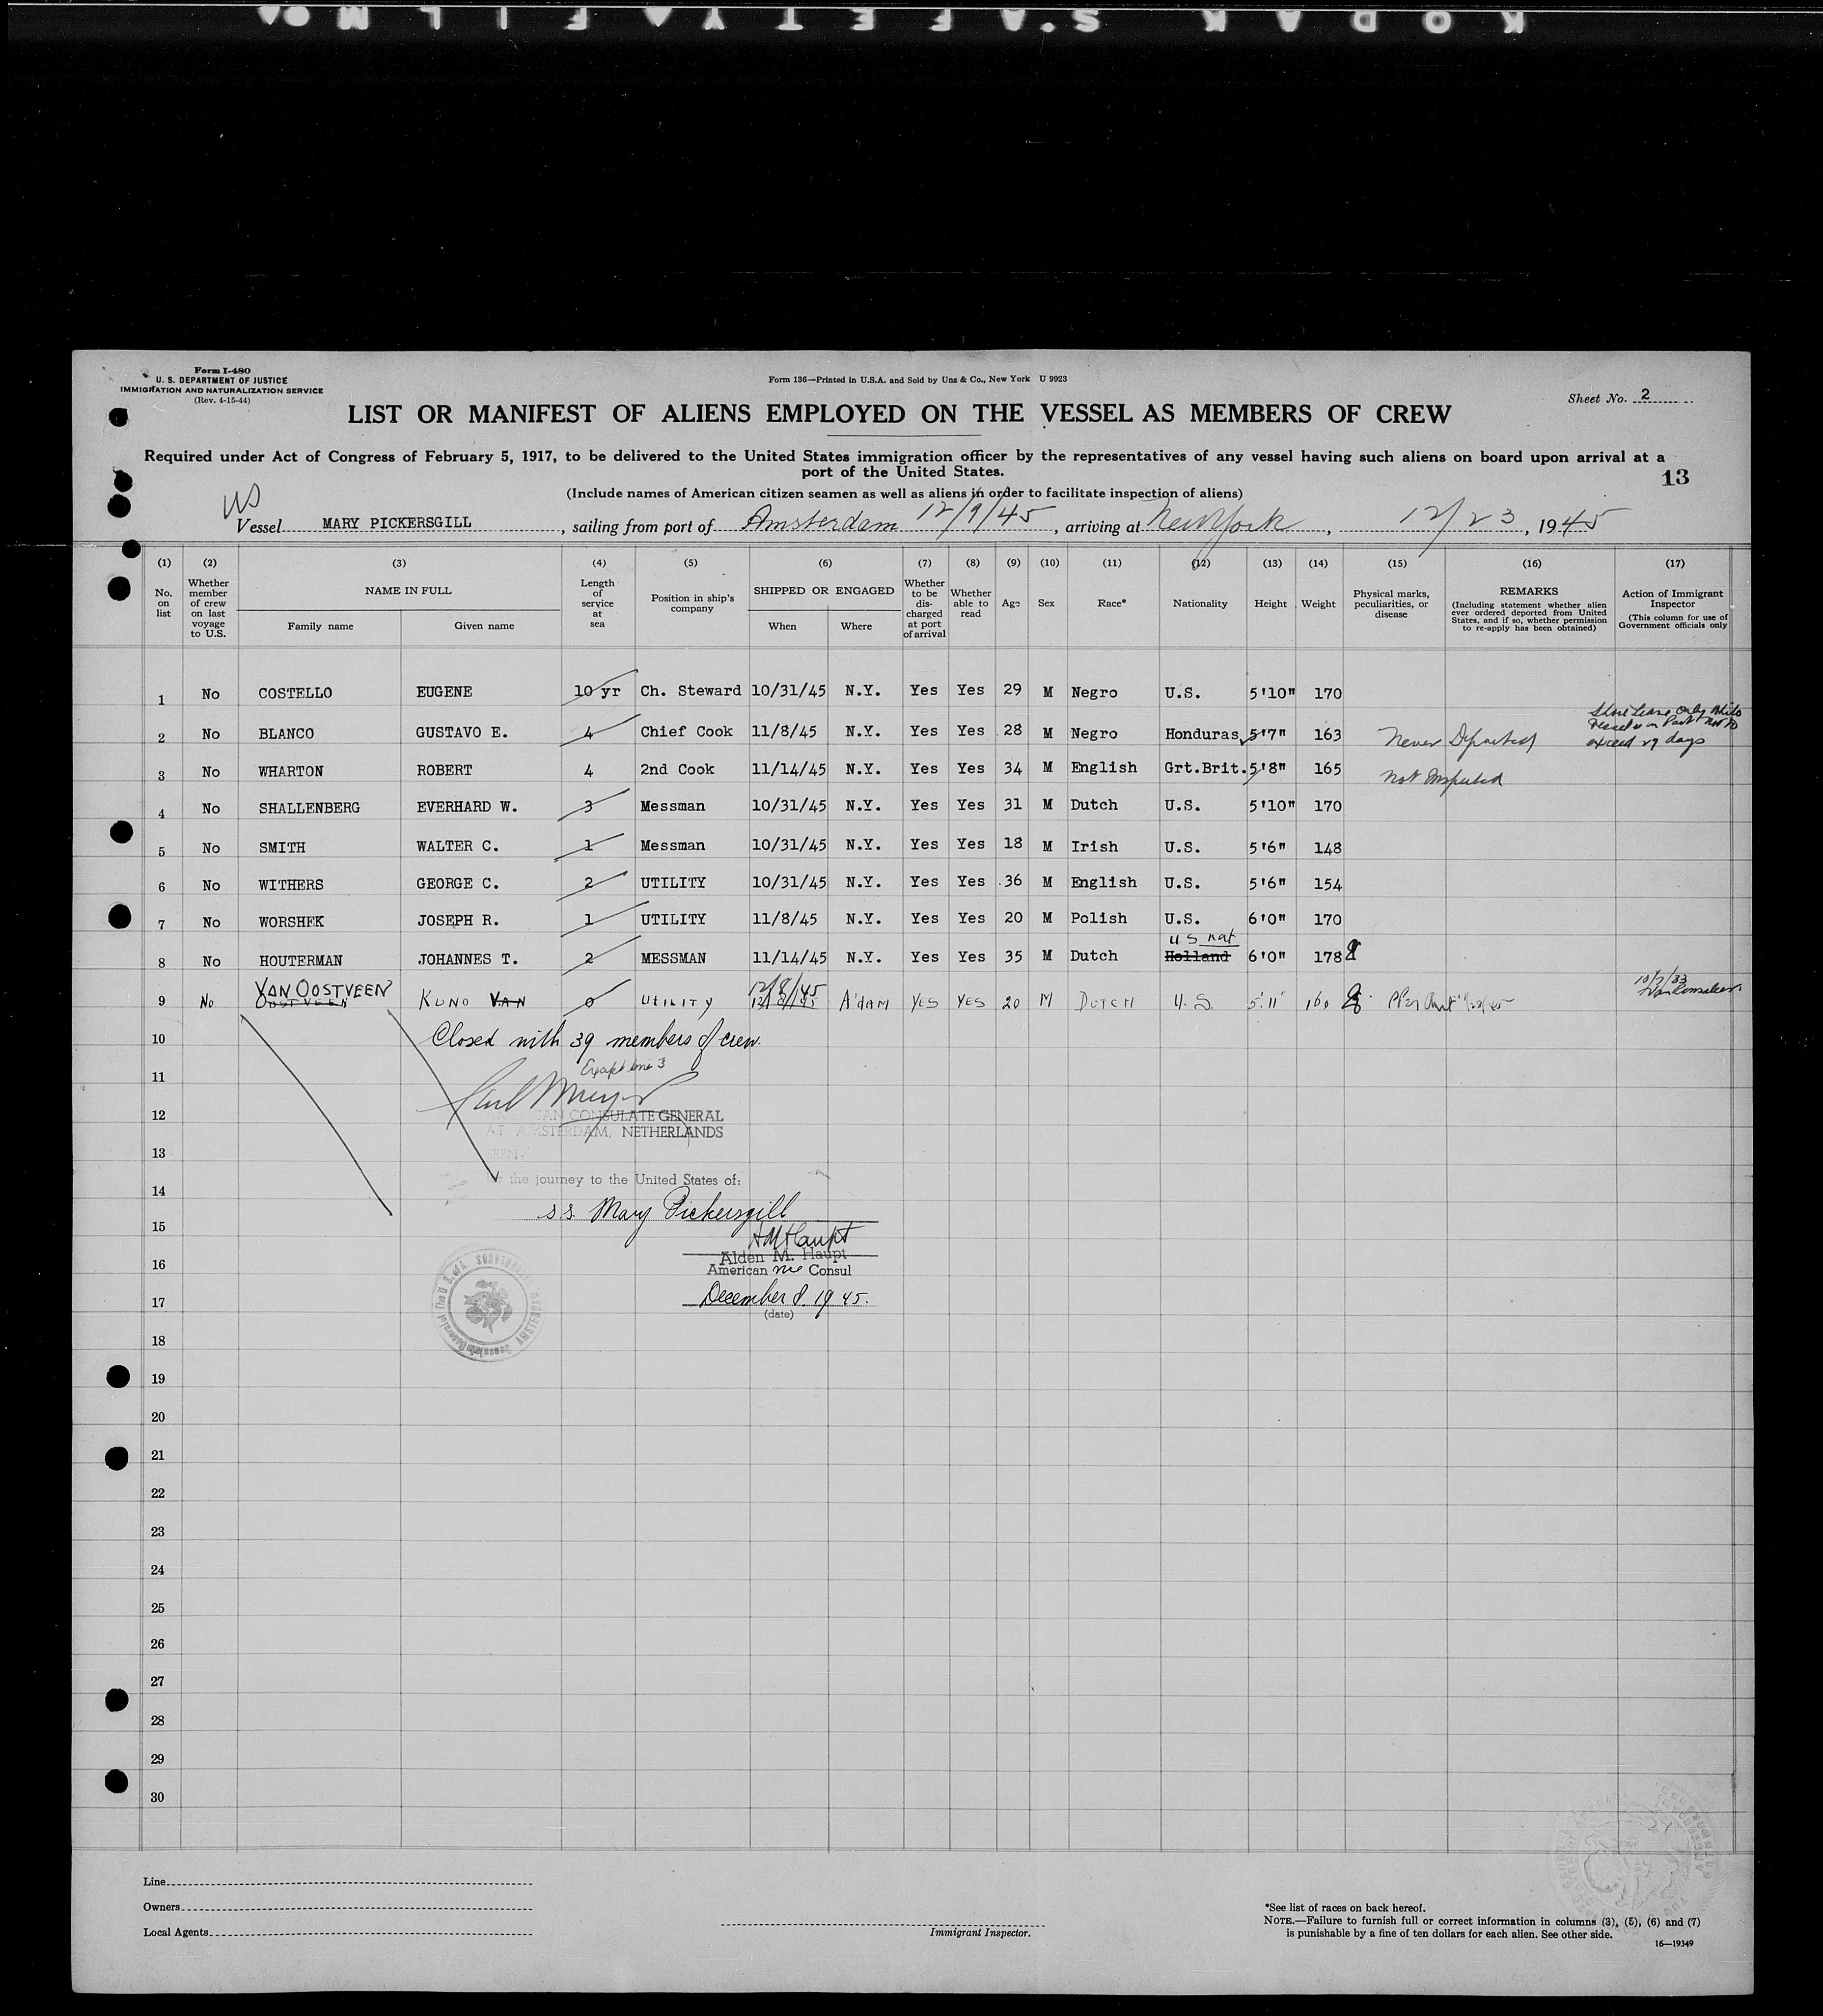 KODAK SAFETY FILM
Form I-480
U. S. DEPARTMENT OF JUSTICE
IMMIGRATION AND NATURALIZATION SERVICE
(Rev. 4-15-44)
Form 136—Printed in U.S.A. and Sold by Unz & Co., New York U 9923
Sheet No. 2
LIST OR MANIFEST OF ALIENS EMPLOYED ON THE VESSEL AS MEMBERS OF CREW
Required under Act of Congress of February 5, 1917, to be delivered to the United States immigration officer by the representatives of any vessel having such aliens on board upon arrival at a
port of the United States.
13
(Include names of American citizen seamen as well as aliens in order to facilitate inspection of aliens)
US
Vessel MARY PICKERSGILL, sailing from port of Amsterdam 12/9/45, arriving at New York, 12/23, 1945
(1) (2) (3) (4) (5) (6) (7) (8) (9) (10) (11) (12) (13) (14) (15) (16) (17)
No. on list
Whether member of crew on last voyage to U.S.
NAME IN FULL
Family name Given name
Length of service at sea
Position in ship's company
SHIPPED OR ENGAGED
When Where
Whether to be discharged at port of arrival
Whether able to read
Age
Sex
Race*
Nationality
Height
Weight
Physical marks, peculiarities, or disease
REMARKS
(Including statement whether alien ever ordered deported from United States, and if so, whether permission to re-apply has been obtained)
Action of Immigrant Inspector
(This column for use of Government officials only
1 No COSTELLO EUGENE 10 yr Ch. Steward 10/31/45 N.Y. Yes Yes 29 M Negro U.S. 5'10" 170
2 No BLANCO GUSTAVO E. 4 Chief Cook 11/8/45 N.Y. Yes Yes 28 M Negro Honduras 5'7" 163 Never Deported Shore leave only while vessel is in Port not to exceed 29 days
3 No WHARTON ROBERT 4 2nd Cook 11/14/45 N.Y. Yes Yes 34 M English Grt.Brit. 5'8" 165 Not Inspected
4 No SHALLENBERG EVERHARD W. 3 Messman 10/31/45 N.Y. Yes Yes 31 M Dutch U.S. 5'10" 170
5 No SMITH WALTER C. 1 Messman 10/31/45 N.Y. Yes Yes 18 M Irish U.S. 5'6" 148
6 No WITHERS GEORGE C. 2 UTILITY 10/31/45 N.Y. Yes Yes 36 M English U.S. 5'6" 154
7 No WORSHEK JOSEPH R. 1 UTILITY 11/8/45 N.Y. Yes Yes 20 M Polish U.S. 6'0" 170
US nat
8 No HOUTERMAN JOHANNES T. 2 MESSMAN 11/14/45 N.Y. Yes Yes 35 M Dutch Holland 6'0" 178
VAN OOSTVEEN 12/8/45
9 No OOSTVEEN KUNO VAN 0 UTILITY 12/8/45 A'DAM YES YES 20 M DUTCH U.S. 5'11" 160
10 Closed with 39 members of crew.
Except line 3
11
12
CONSULATE GENERAL
AT AMSTERDAM, NETHERLANDS
13
SEEN:
the journey to the United States of:
14
S.S. Mary Pickersgill
15
AMHaupt
Alden M. Haupt
16
American vice Consul
17
December 8. 1945.
(date)
18
19
20
21
22
23
24
25
26
27
28
29
30
Line
Owners
Local Agents
Immigrant Inspector.
*See list of races on back hereof.
NOTE.—Failure to furnish full or correct information in columns (3), (5), (6) and (7)
is punishable by a fine of ten dollars for each alien. See other side.
16—19349